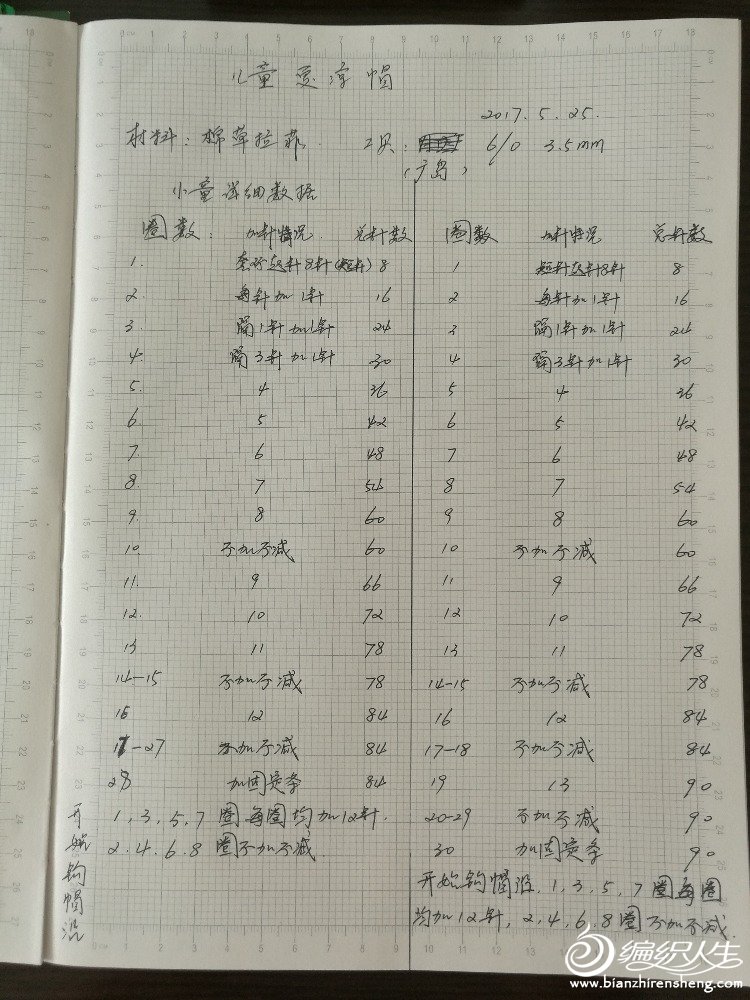 儿童夏凉帽
2017.5.25.
材料：棉草拉菲. 工具： 6/0 3.5mm
（广岛）
小童详细数据
圈数： 加针情况 总针数 圈数 加针情况 总针数
1. 起针8针(短针) 8 1 短针起针8针 8
2 每针加1针 16 2 每针加1针 16
3 隔1针加1针 24 3 隔1针加1针 24
4. 隔3针加1针 30 4 隔3针加1针 30
5. 4 36 5 4 36
6. 5 42 6 5 42
7 6 48 7 6 48
8. 7 54 8 7 54
9. 8 60 9 8 60
10. 不加不减 60 10 不加不减 60
11. 9 66 11 9 66
12. 10 72 12 10 72
13 11 78 13 11 78
14-15 不加不减 78 14-15 不加不减 78
16 12 84 16 12 84
17-27 不加不减 84 17-18 不加不减 84
28 加固定条 84 19 13 90
开始钩帽沿 1,3,5,7圈每圈均加12针. 20-29 不加不减 90
2.4.6.8圈不加不减 30 加固定条 90
开始钩帽沿,1,3,5,7圈每圈
均加12针,2,4,6,8圈不加不减.
编织人生
www.bianzhirensheng.com